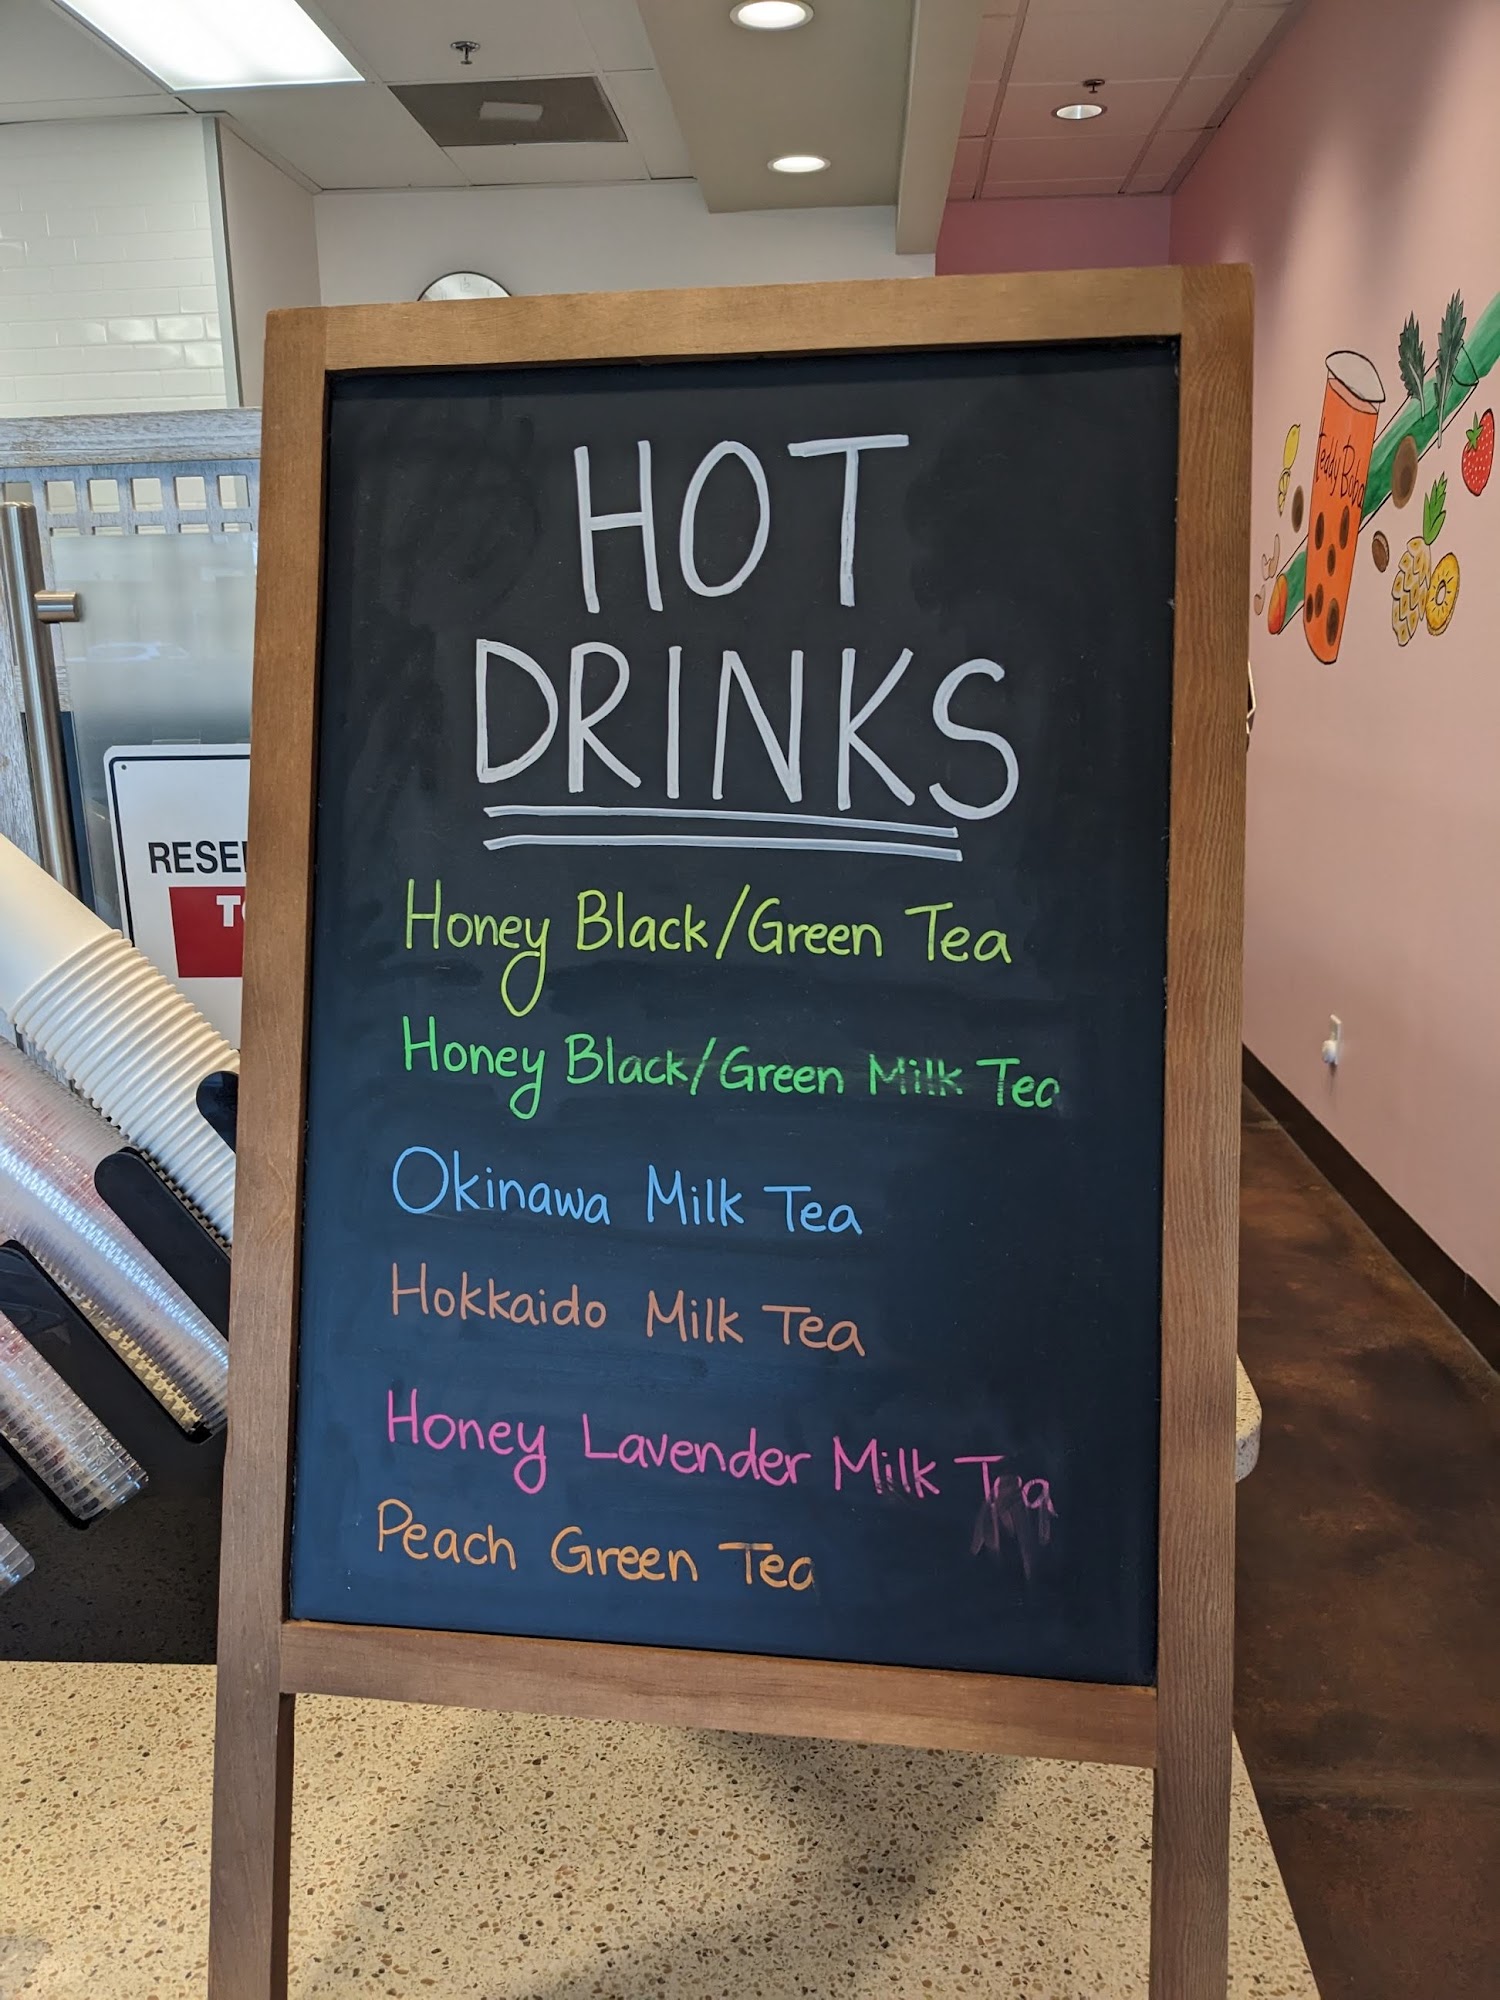 HOT
DRINKS
Honey Black/Green Tea
Honey Black/Green Milk Tea
Okinawa Milk Tea
Hokkaido Milk Tea
Honey Lavender Milk Tea
Peach Green Tea
Teddy Boba